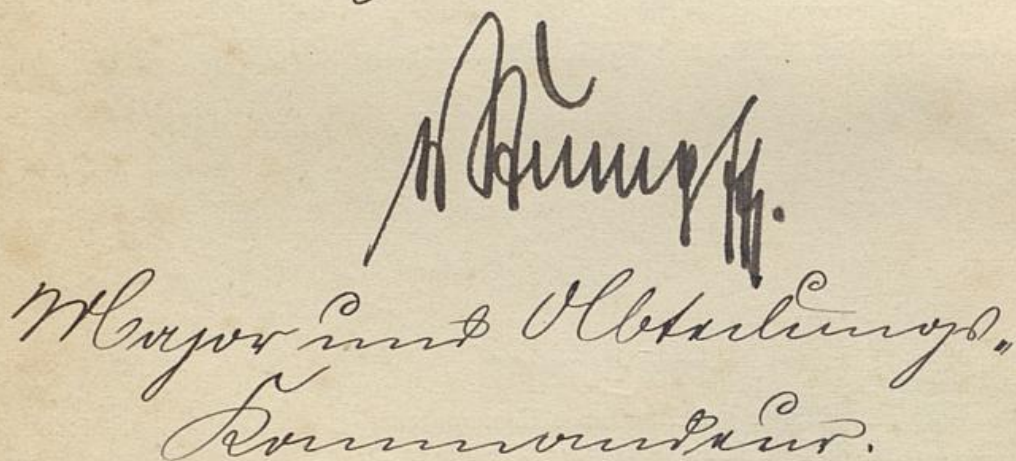 v Rumpff.
Major und Abteilungs-
Kommandeur.